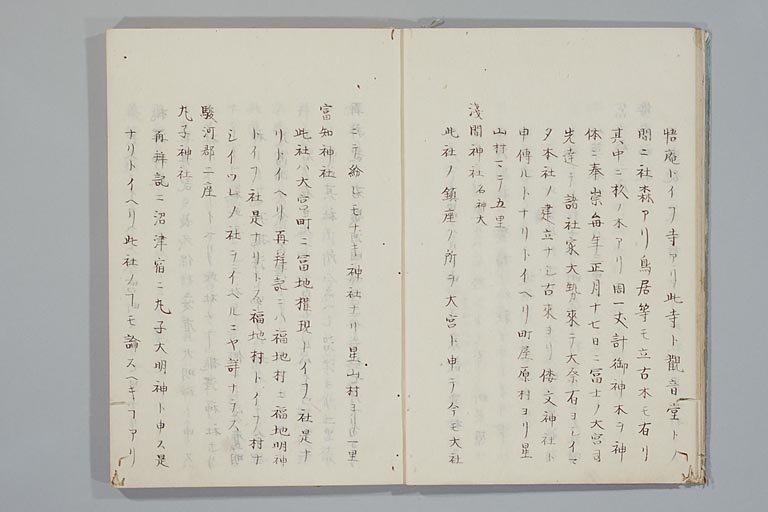 悟庵トイフ寺アリ此寺ト觀音堂トノ
間ニ社森アリ鳥居等モ立古木モ有リ
其中ニ杦ノ木アリ周一丈計御神木ヲ神
体ニ奉崇毎年正月十七日ニ冨士ノ大宮司
先達ニテ諸社家大勢來テ大祭有ヨシイマ
タ本社ノ建立ナシ古來ヨリ倭文神社ト
申傳ルトナリトイヘリ町屋原村ヨリ星
山村マテ五里
淺間神社 名神大
此社ノ鎮座ノ所ヲ大宮ト申テ今モ大社
ニテ紛レモナキ神社ナリ星山村ヨリ一里
富知神社
此社ハ大宮町ニ冨地權現トイフ社是ナ
リトイヘリ再拜記ニハ福地村ニ福地明神
トイフ社是ナリトス福地村トイフ村ナ
シイツレノ社ヲイヘルニヤ詳ナラス
駿河郡二座
丸子神社
再拜記ニ沼津宿ニ丸子大明神ト申ス是
ナリトイヘリ此社ノヿモ論スヘキヿアリ